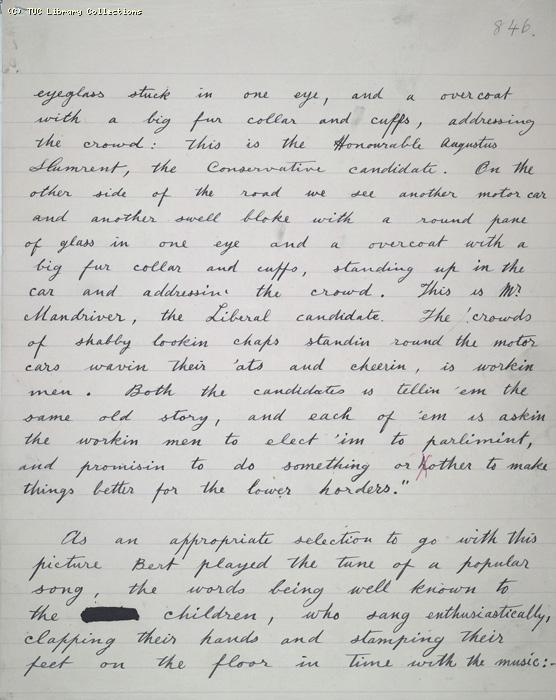 (C) TUC Library Collections
846.
eyeglass stuck in one eye, and a overcoat
with a big fur collar and cuffs, addressing
the crowd: this is the Honourable Augustus
Slumrent, the Conservative candidate. On the
other side of the road we see another motor car
and another swell bloke with a round pane
of glass in one eye and a overcoat with a
big fur collar and cuffs, standing up in the
car and addressin' the crowd. This is Mr
Mandriver, the Liberal candidate. The crowds
of shabby lookin chaps standin round the motor
cars wavin their 'ats and cheerin, is workin
men. Both the candidates is tellin 'em the
same old story, and each of 'em is askin
the workin men to elect 'im to parlimint,
and promisin to do something or other to make
things better for the lower horders."
As an appropriate selection to go with this
picture Bert played the tune of a popular
song, the words being well known to
the children, who sang enthusiastically,
clapping their hands and stamping their
feet on the floor in time with the music:-